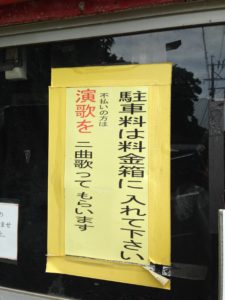 駐車料は料金箱に入れて下さい
不払いの方は
演歌を二曲歌ってもらいます